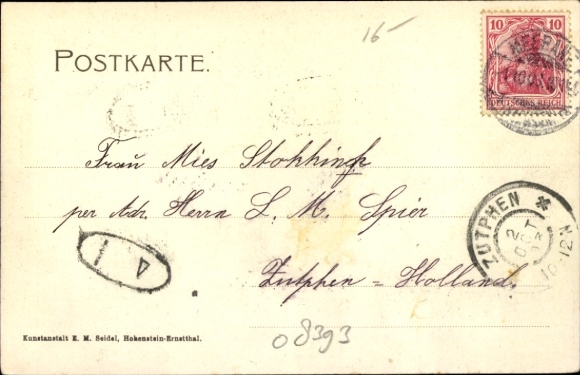 16-
POSTKARTE.
10 10
DEUTSCHES REICH
Frau Mies
per Adr. Herrn L. M. Spier
Zutphen = Holland.
ZUTPHEN
OCT
10-12 N
08393
Kunstanstalt E. M. Seidel, Hohenstein-Ernstthal.